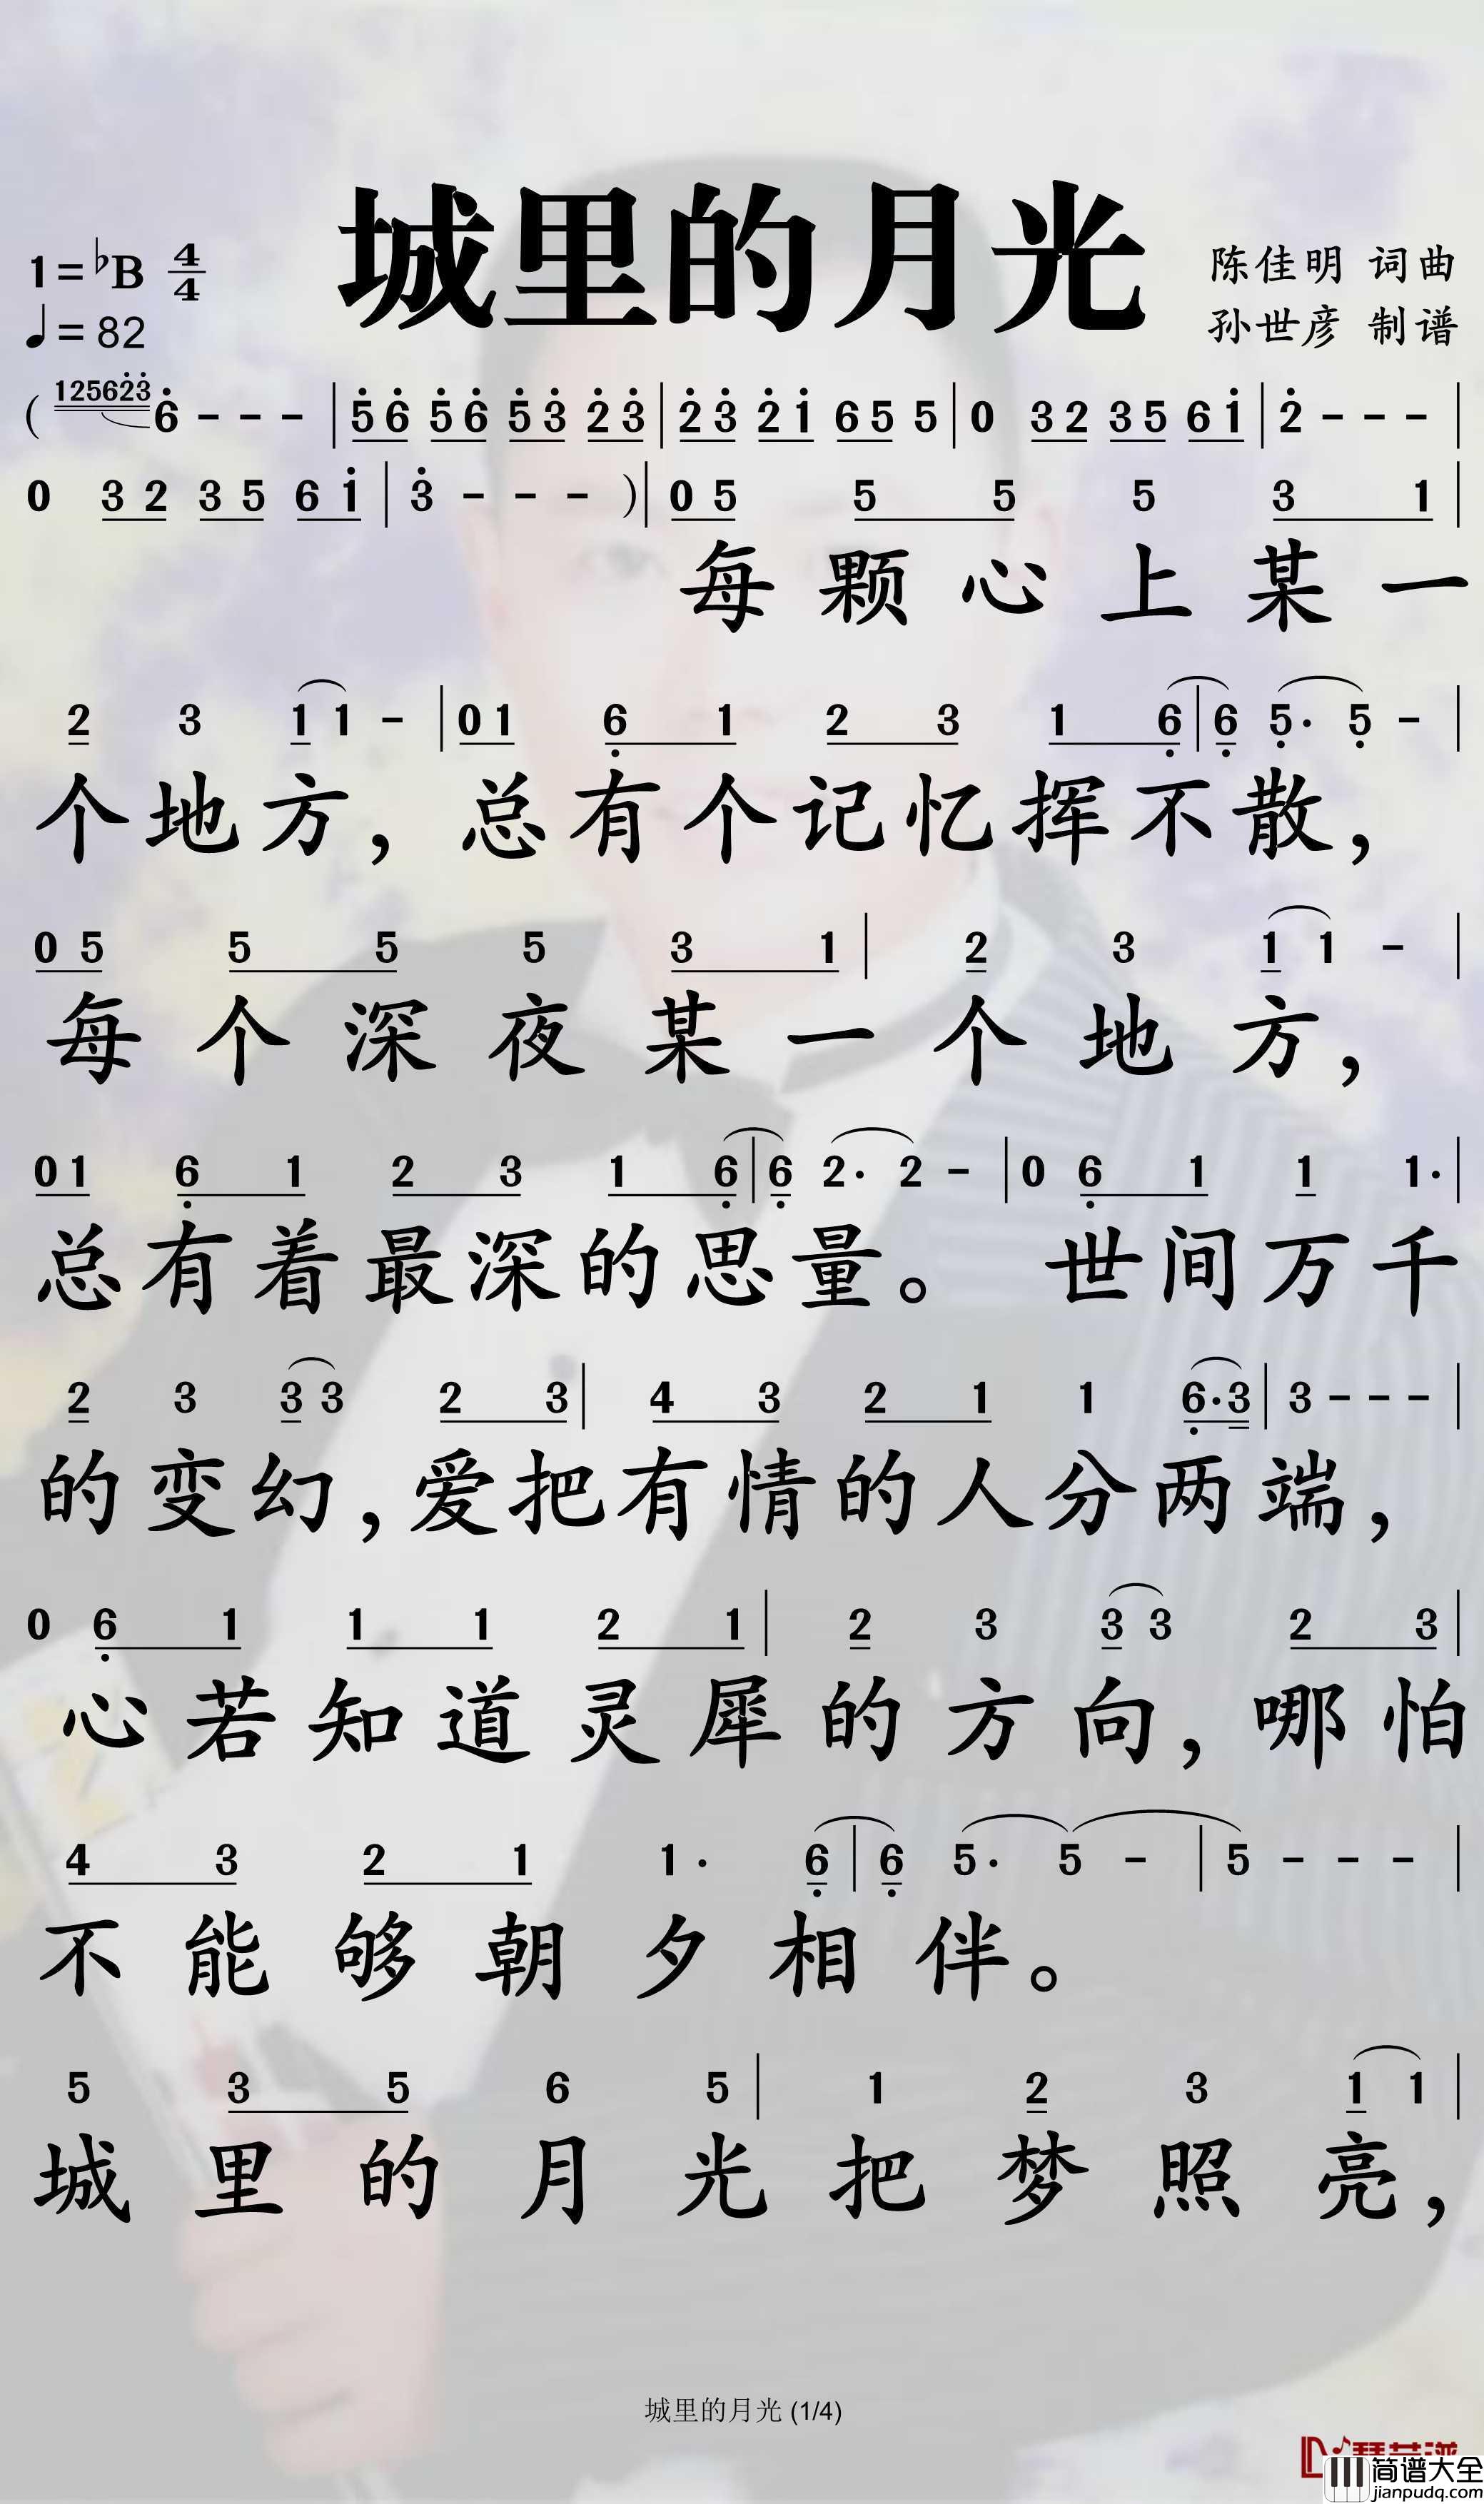 城里的月光
1=♭B 4/4
♩=82
陈佳明 词曲
孙世彦 制谱
( 125623 6 - - - | 5 6 5 6 5 3 2 3 | 2 3 2 1 6 5 5 | 0 3 2 3 5 6 1 | 2 - - - |
0 3 2 3 5 6 1 | 3 - - - ) | 0 5 5 5 5 3 1 |
每颗心上某一
2 3 1 1 - | 0 1 6 1 2 3 1 6 | 6 5· 5 - |
个地方，总有个记忆挥不散，
0 5 5 5 5 3 1 | 2 3 1 1 - |
每个深夜某一个地方，
0 1 6 1 2 3 1 6 | 6 2· 2 - | 0 6 1 1 1· |
总有着最深的思量。 世间万千
2 3 3 3 2 3 | 4 3 2 1 1 6·3 | 3 - - - |
的变幻，爱把有情的人分两端，
0 6 1 1 1 2 1 | 2 3 3 3 2 3 |
心若知道灵犀的方向，哪怕
4 3 2 1 1· 6 | 6 5· 5 - | 5 - - - |
不能够朝夕相伴。
5 3 5 6 5 | 1 2 3 1 1 |
城里的月光把梦照亮，
城里的月光 (1/4)
简谱大全
jianpudq.com